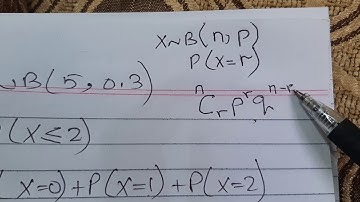 X~B(n, p)
P(X=r)
~B(5, 0.3)
ⁿCᵣ pʳ qⁿ⁻ʳ
P(X≤2)
(X=0)+P(X=1)+P(X=2)